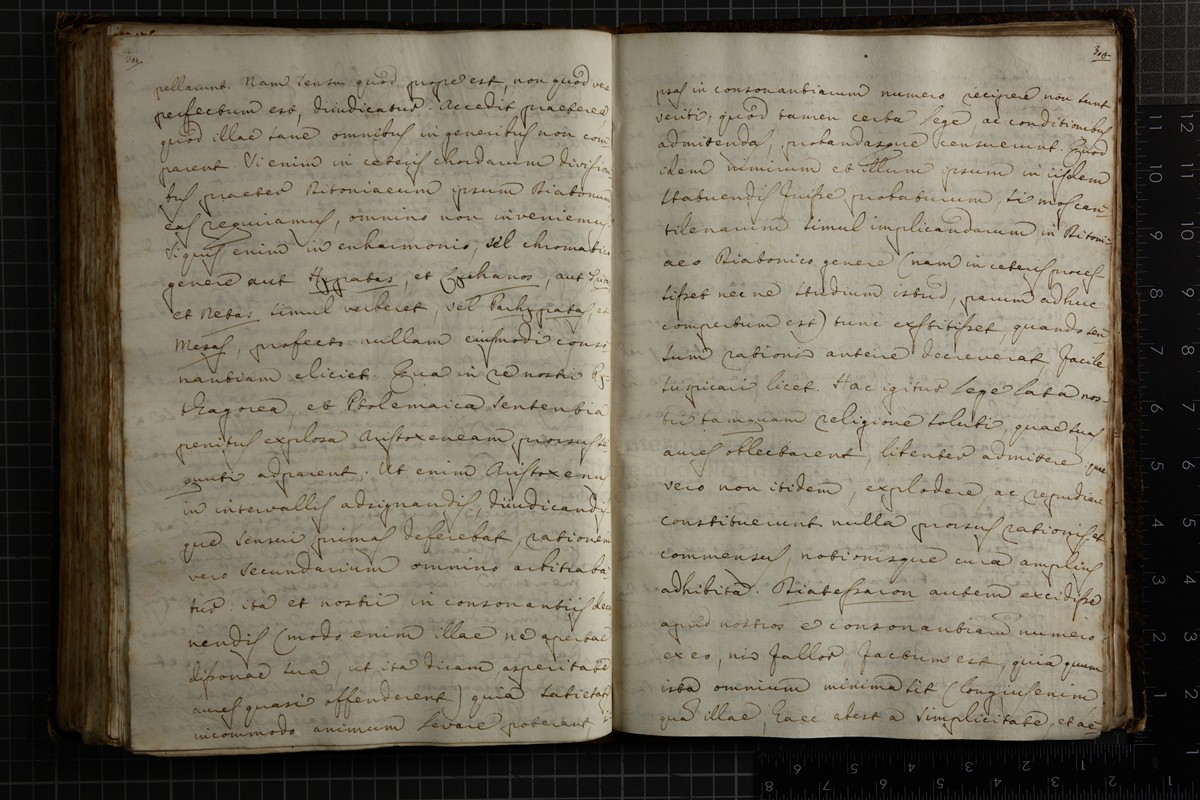 pellarunt. Nam sensu quod prope est, non quod vere
perfectum est, diiudicatur. Accedit praeterea
quod illae sane omnibus in generibus non com
parent. Si enim in ceteris chordarum division
bus praeter Ditoniaeum ipsum Diatonum
eas requiramus, omnino non inveniemus.
Siquis enim in enharmonio, vel chromatico
genere aut Hypatas, et Lychanos, aut
et Netas simul verberet, vel Parhypatas, et
Mesas, profecto nullam eiusmodi conso-
nantiam eliciet. Qua in re nostri Py-
thagorea, et Ptolemaica sententia
penitus explosa Aristoxeneam prorsus se
quuti adparent. Ut enim Aristoxenus
in intervallis adsignandis, diiudicandis
que sensui primas deferebat, rationem
vero secundarium omnino arbitraba
tur: ita et nostri in consonantiis
nendis (modo enim illae ne apertae
disonae sua, ut ita dicam, asperitate
aures quasi offenderent) quia satietati
incommodo animum levare poterant,
300
psas in consonantiarum numero recipere non sunt
veriti, quod tamen certa lege, ac conditionibus
admittendas, probandasque censuerunt. Quod
idem nimirum et illum ipsum in iisdem
statuendis fuisse probaturum, si mos can-
tilenarum simul implicandarum in Ditoni-
aeo Diatonico genere (nam in ceteris proces
sisset nec ne studium istud, parum adhuc
compertum est) tunc exstitisset, quando sen-
sum rationi anteire decreverat, facile
suspicari licet. Hac igitur lege lata nos-
tri tamquam religione soluti, quae suas
aures oblectarent, libenter admittere, quae
vero non itidem, explodere, ac repudiare
constituerunt nulla prorsus rationis, et
commensus, notionisque cura amplius
adhibita. Diatessaron autem excidisse
apud nostros e consonantiarum numero
ex eo, ni fallor, factum est, quia quum
ista omnium minima sit (longius enim
quam illae, haec abest a simplicitate, et ae-